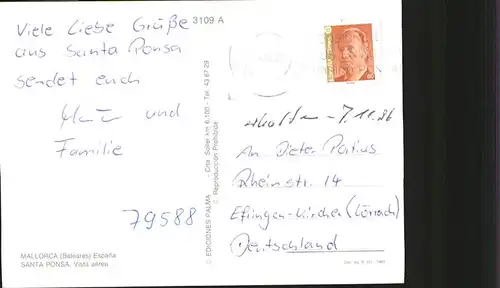 Viele liebe Grüße
aus Santa Ponsa
sendet euch
und
Familie
79588
MALLORCA (Baleares) España
SANTA PONSA. Vista aérea
3109 A
© EDICIONES PALMA Ctra. Soller km 6,100 - Tel. 43 67 29
© Reproducción Prohibida
60
erhalten - 7.11.96
An Dieter
Rheinstr. 14
Efringen-Kirchen (Lörrach)
Deutschland